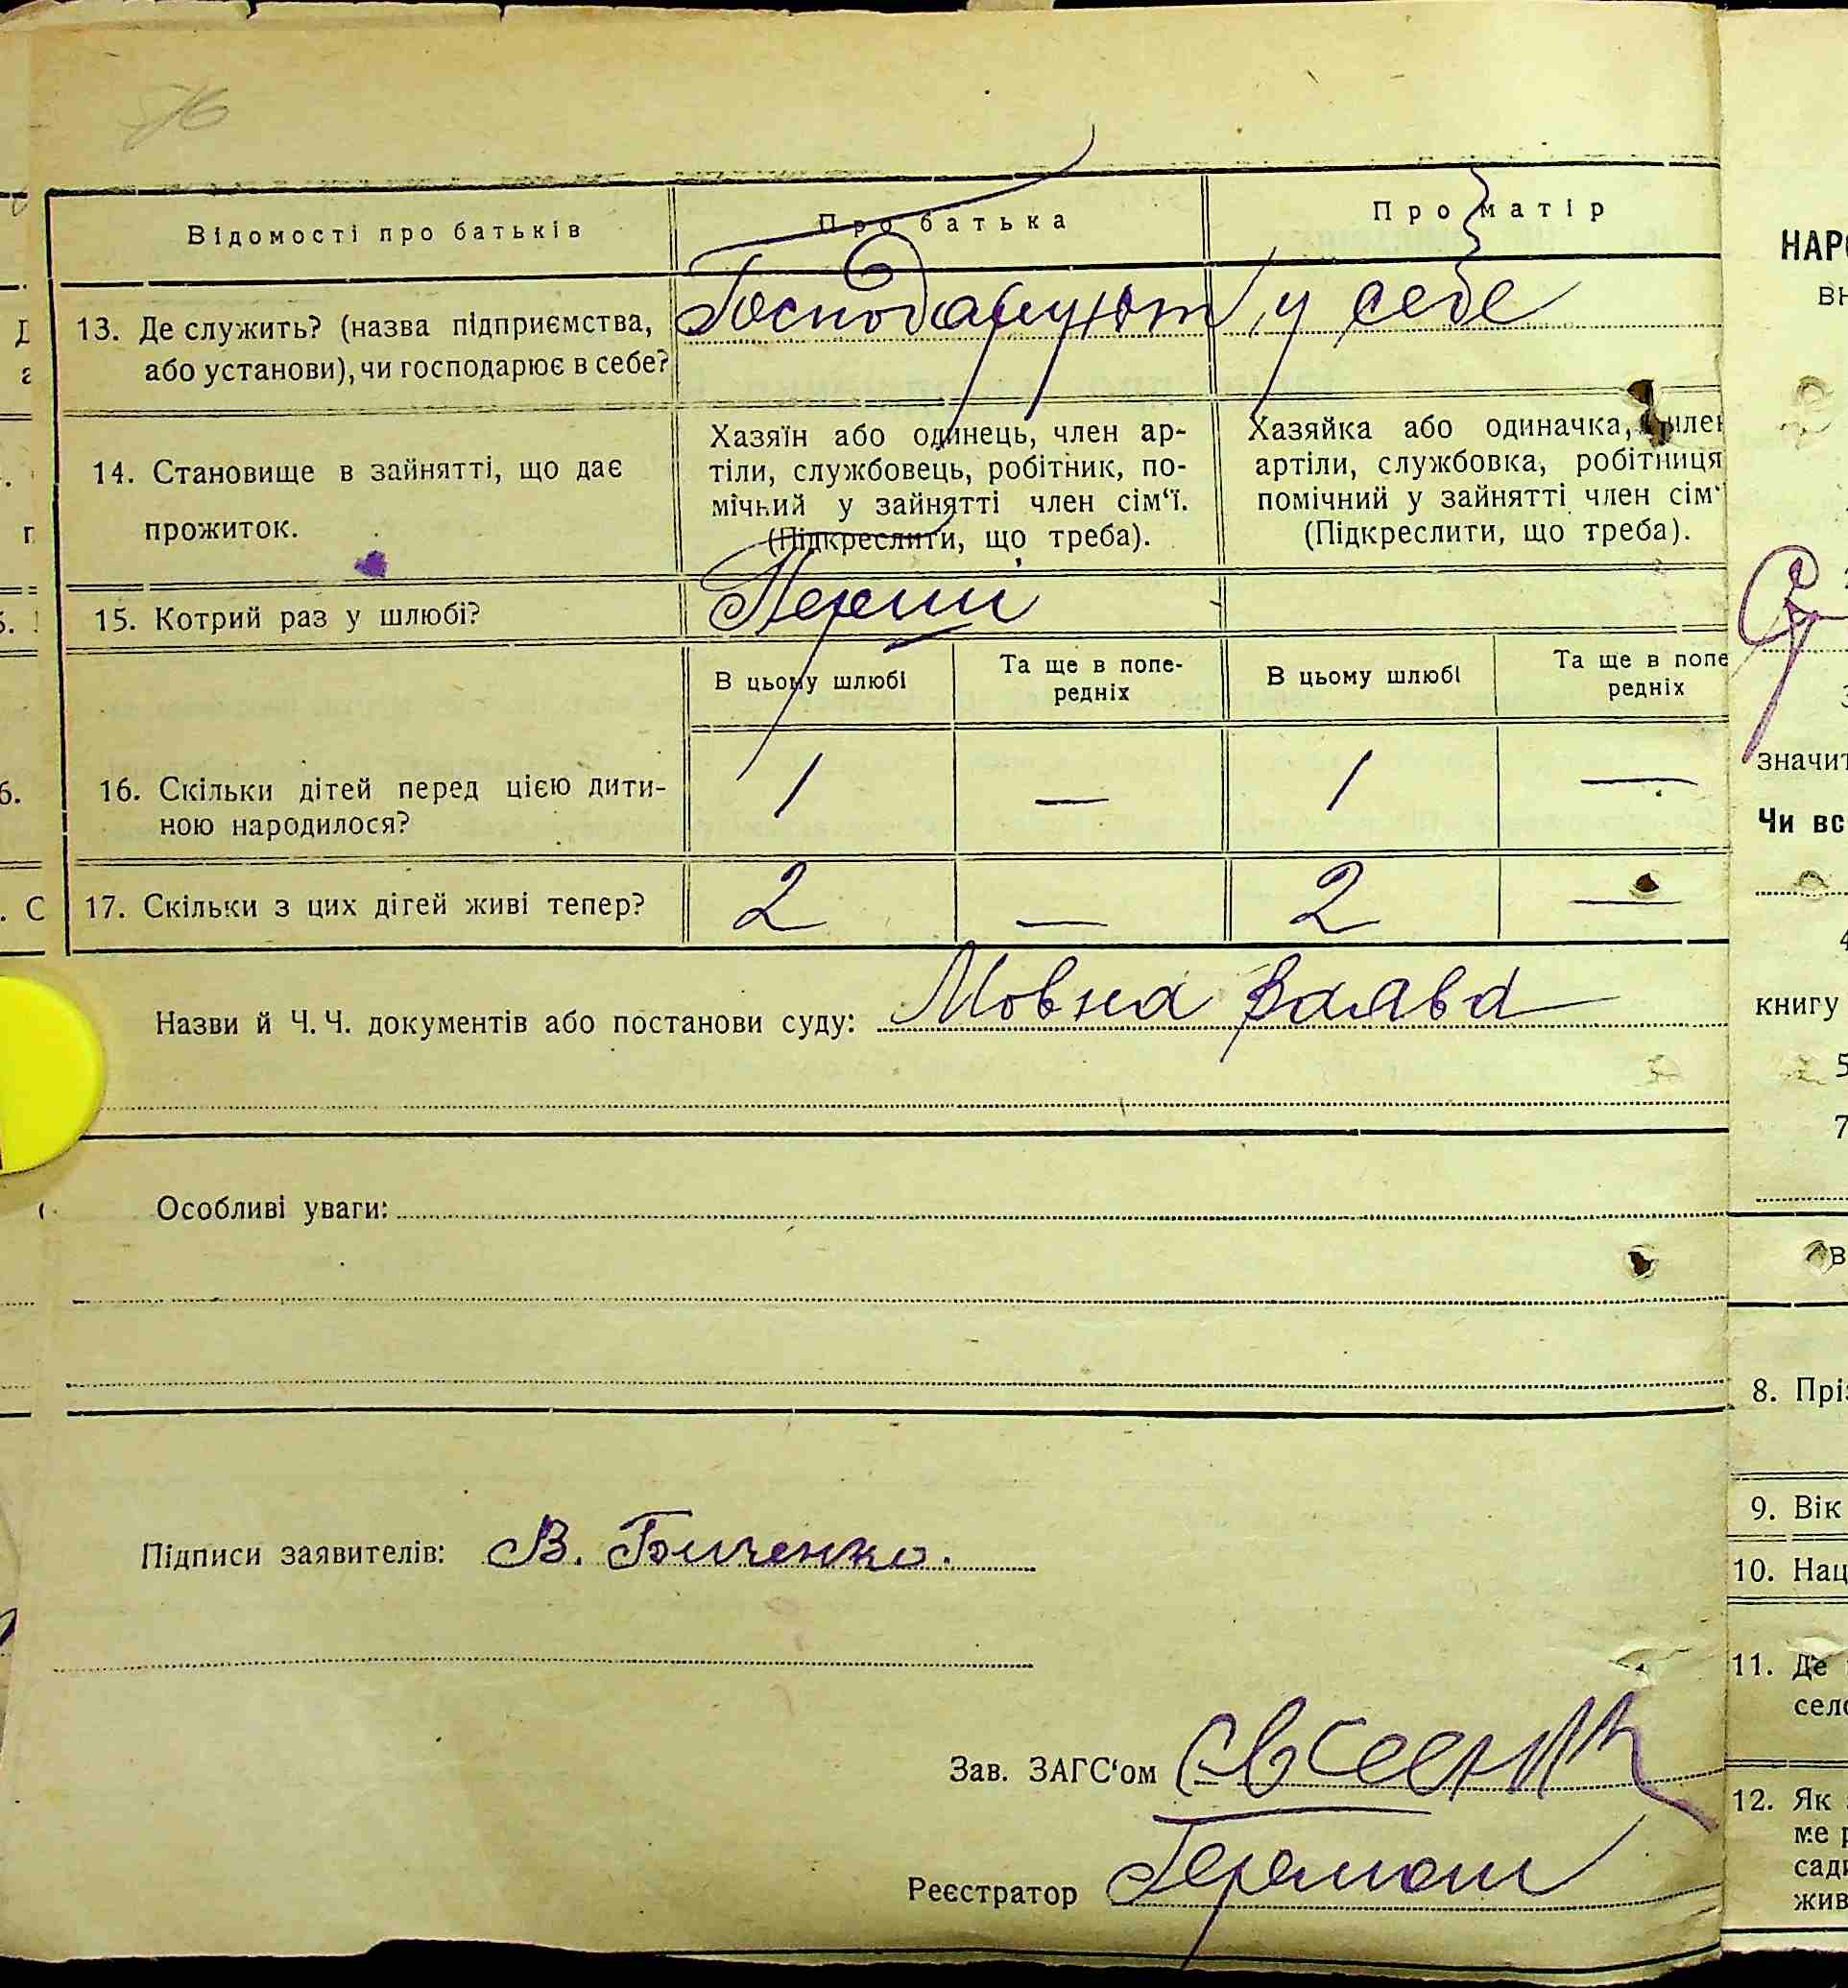 76
Відомості про батьків
Про батька
Про матір
13. Де служить? (назва підприємства, або установи), чи господарює в себе?
Господарують у себе
14. Становище в зайнятті, що дає прожиток.
Хазяїн або одинець, член ар-
тіли, службовець, робітник, по-
мічний у зайнятті член сім'ї.
(Підкреслити, що треба).
Хазяйка або одиначка, член
артіли, службовка, робітниця
помічний у зайнятті член сім'
(Підкреслити, що треба).
15. Котрий раз у шлюбі?
Перший
В цьому шлюбі
Та ще в попе-
редніх
В цьому шлюбі
Та ще в попе
редніх
16. Скільки дітей перед цією дити-
ною народилося?
1 — 1 —
17. Скільки з цих дітей живі тепер?
2 — 2 —
Назви й Ч. Ч. документів або постанови суду: Мовна заява
Особливі уваги:
Підписи заявителів: В.
Зав. ЗАГС'ом
Реєстратор
НАР
значит
Чи вс
книгу
8. Прі
9. Вік
10. Нац
11. Де
село
12. Як
ме р
сад
жив